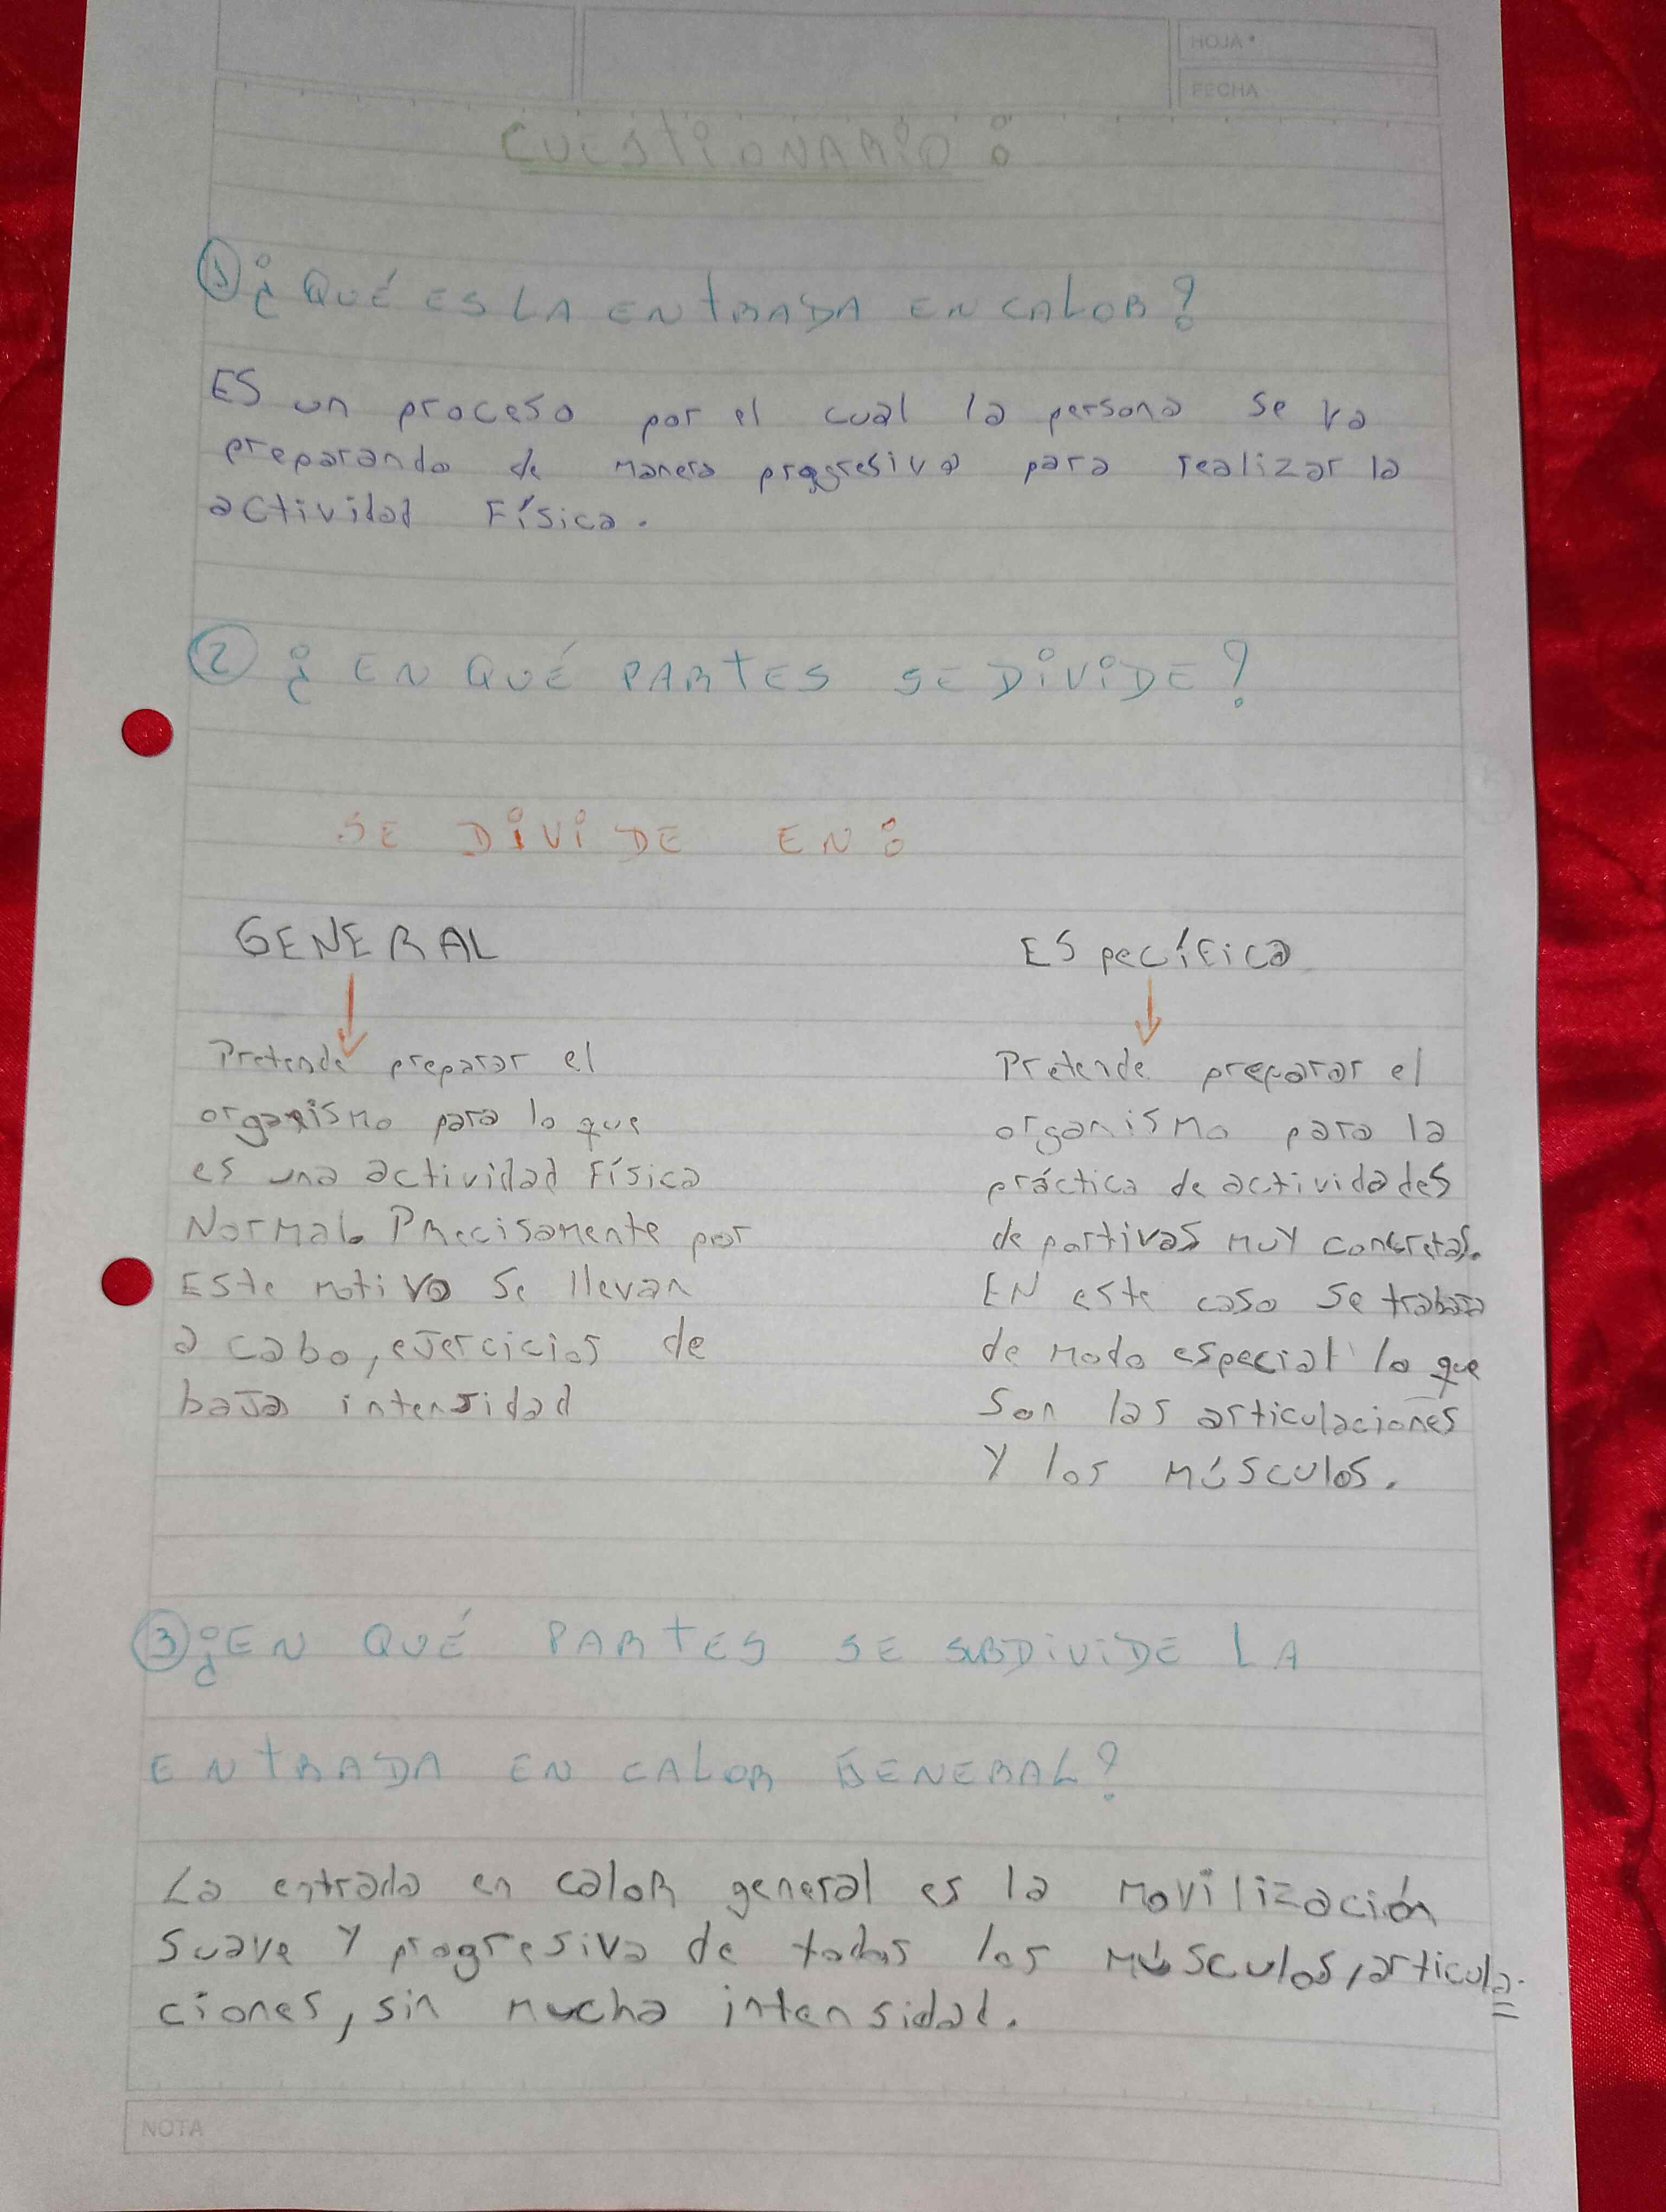 HOJA *
FECHA
CUESTIONARIO:
1 ¿QUÉ ES LA ENTRADA EN CALOR?
ES un proceso por el cual la persona se va
preparando de manera progresiva para realizar la
actividad Física.
2 ¿EN QUÉ PARTES SE DIVIDE?
SE DIVIDE EN:
GENERAL
Pretende preparar el
organismo para lo que
es una actividad Física
Normal. Precisamente por
Este motivo se llevan
a cabo, ejercicios de
baja intensidad
ESpecífica
Pretende preparar el
organismo para la
práctica de actividades
deportivas muy concretas.
EN este caso se trabaja
de modo especial lo que
son las articulaciones
Y los músculos.
3 ¿EN QUÉ PARTES SE SUBDIVIDE LA
ENTRADA EN CALOR GENERAL?
La entrada en calor general es la movilización
suave y progresiva de todos los músculos, articula=
ciones, sin mucha intensidad.
NOTA